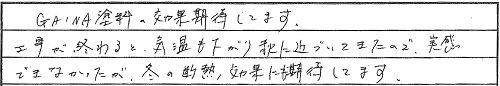 GAINA塗料の効果期待してます。
工事が終わると、気温も下がり秋に近づいてきたので、実感
できなかったが、冬の断熱効果にも期待してます。